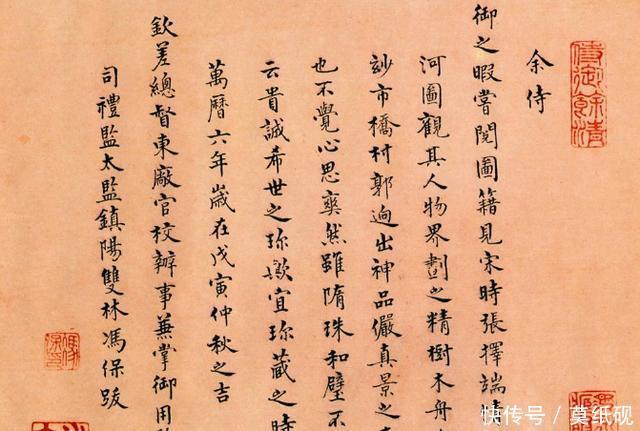 余侍
御之暇嘗閱圖籍見宋時張擇端清
河圖觀其人物界劃之精樹木舟
玅市橋村郭逈出神品儼真景之
也不覺心思爽然雖隋珠和璧不
云貴誠希世之珎歟宜珎藏之時
萬曆六年歲在戊寅仲秋之吉
欽差總督東廠官校辦事蒹掌御用
司禮監太監鎮陽雙林馮保跋
侍御餘清
快传号／莫纸砚